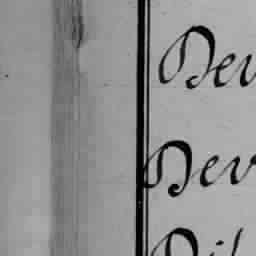 Dev
Dev
Dil